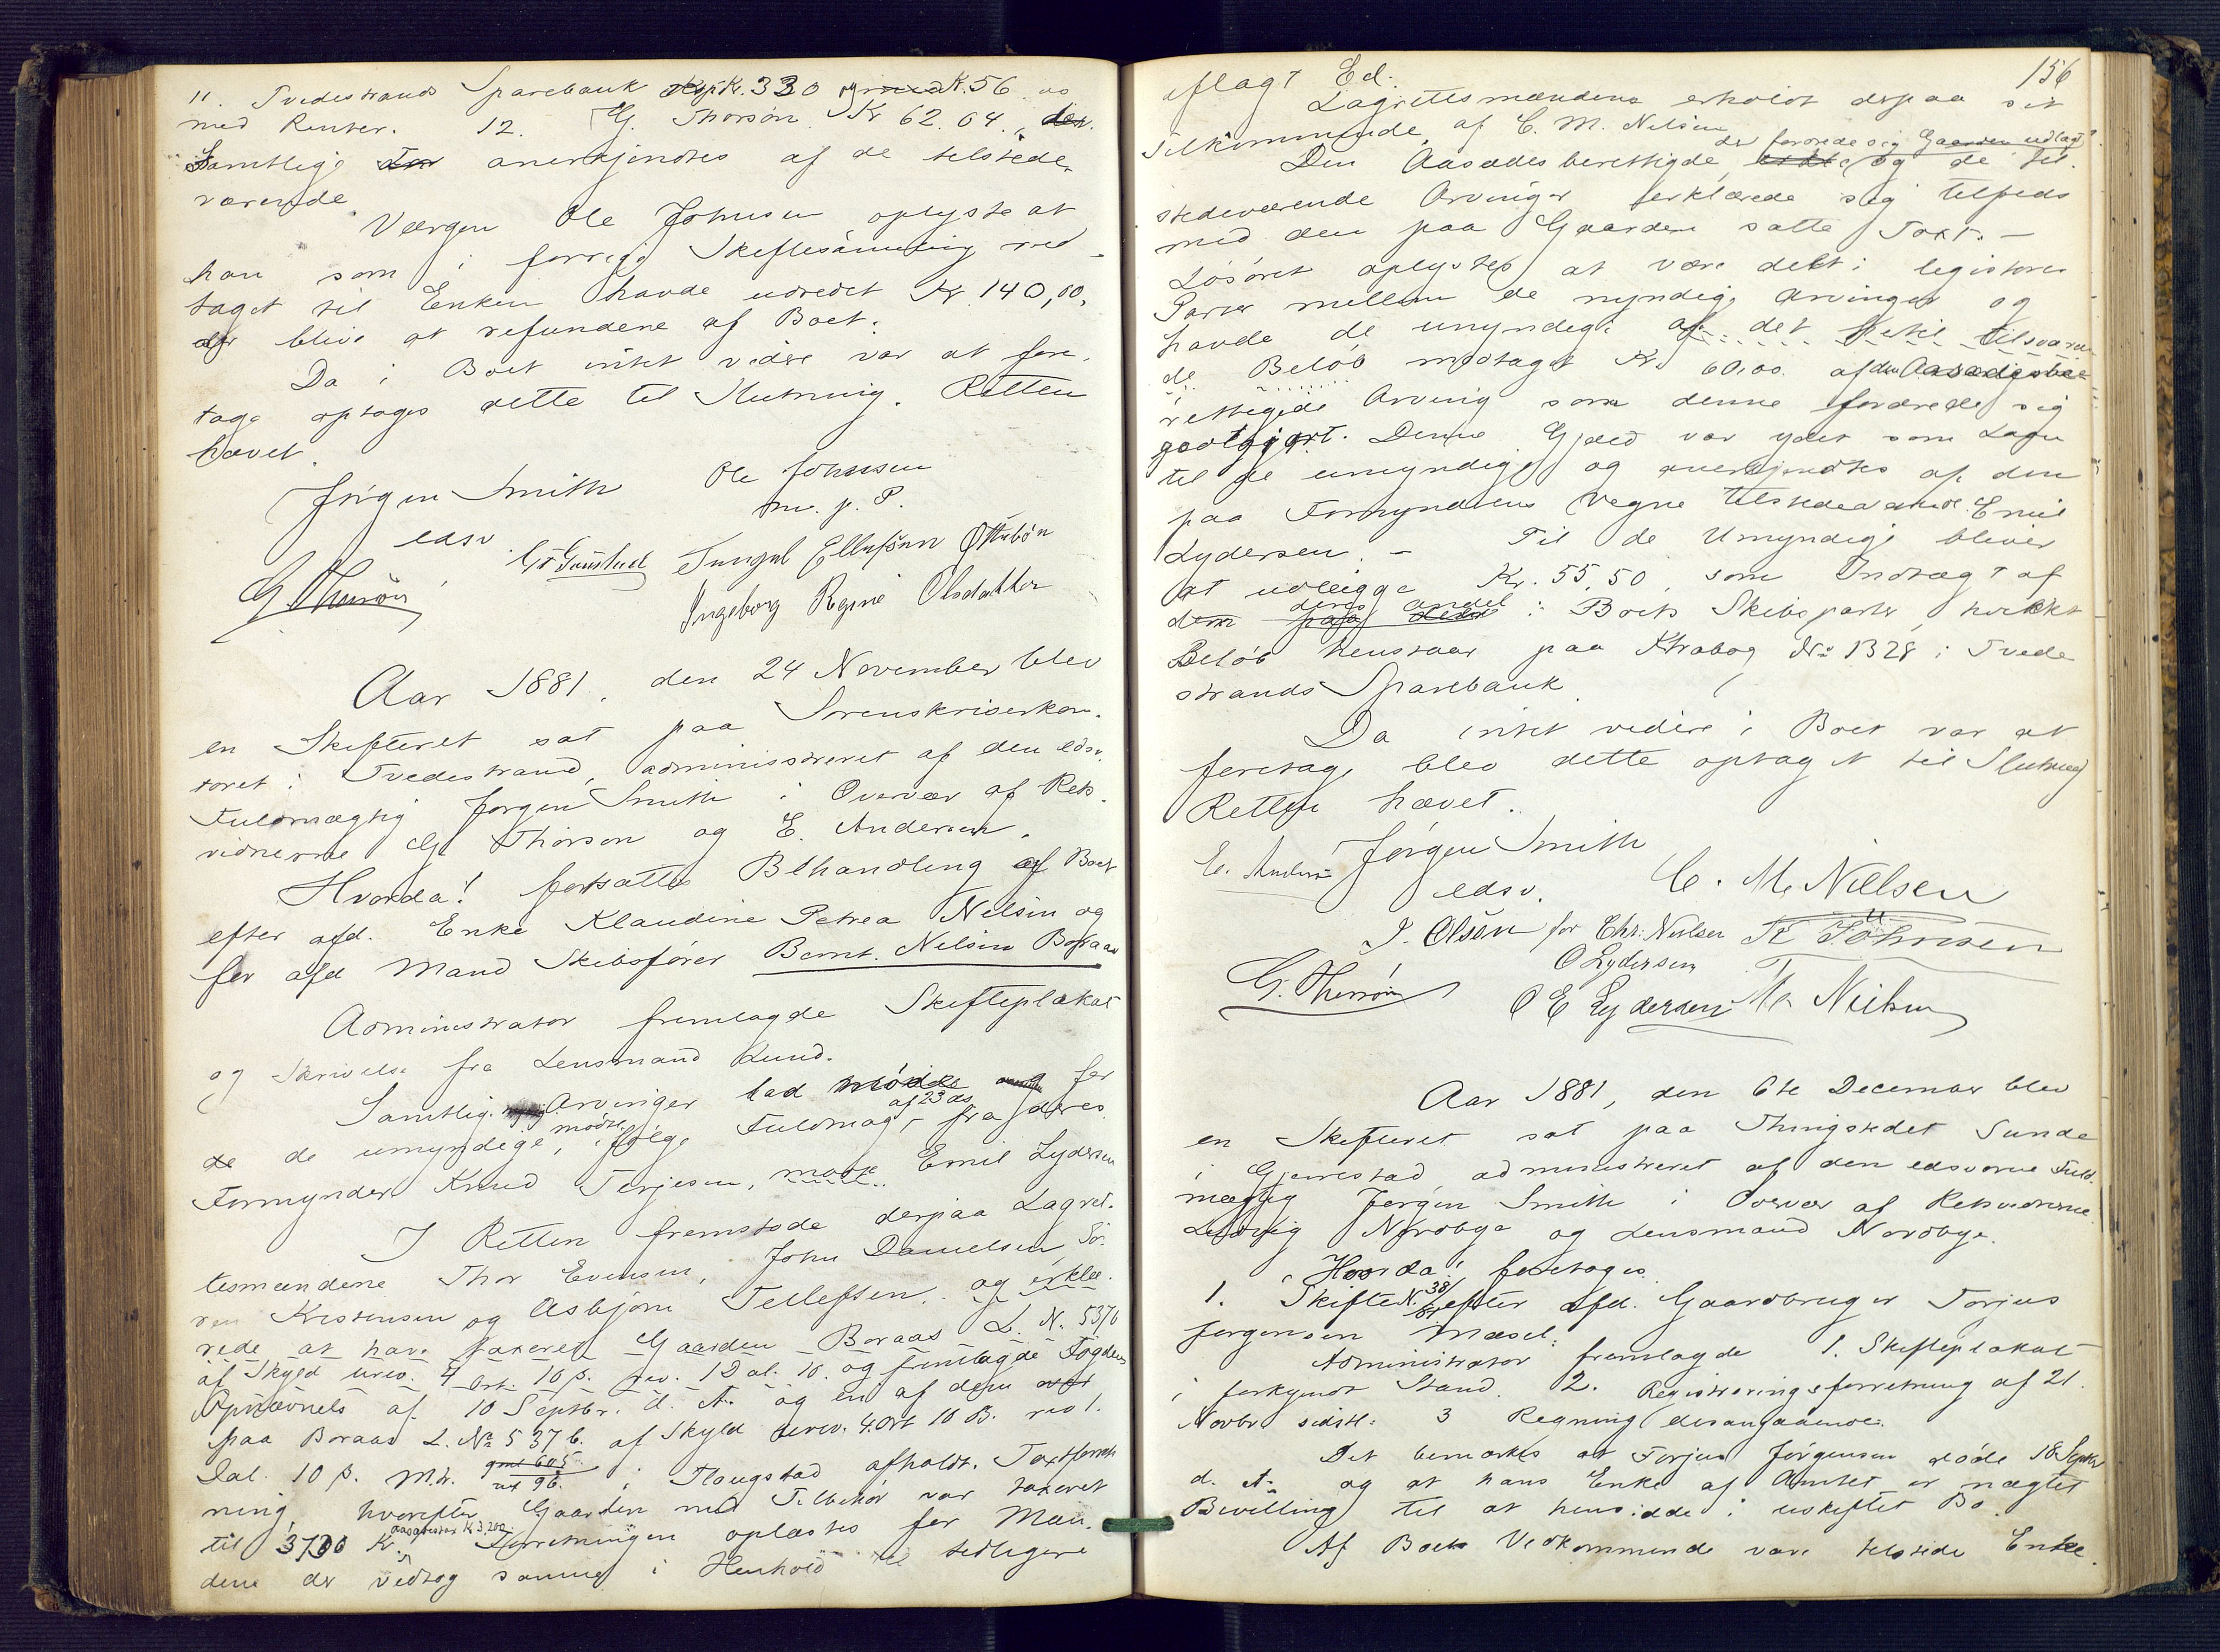 11. Tvedestrands Sparebank Kr. 330 og Kr. 56 os
med Renter. 12. G. Thorsøn Kr 62.64.
Samtlige anerkjendtes af de tilstede-
værende.
Værgen Ole Johnsen oplyste at
han som i forrige Skiftesamling ved-
taget til Enken havde udredet Kr. 140,00,
der blive at refundere af Boet.
Da i Boet intet videre var at fore-
tage optoges dette til Slutning. Retten
hævet.
Jørgen Smith Ole Johnsen
edsv. m. p. P.
G. Thorsøn Tungel Ellefsen
Ingeborg Regine Olsdatter
Aar 1881, den 24 November blev
en Skifteret sat paa Sorenskriverkon-
toret i Tvedestrand, administreret af den edsv.
Fuldmægtig Jørgen Smith i Overvær af Rets-
vidnerne G. Thorson og E. Andersen.
Hvorda! fortsattes Behandling af Boet
efter afd. Enke Klaudine Petrea Nelsen og
før afd Mand Skibsfører Bernt Nelsen Boraas
Administrator fremlagde Skifteplakat
og Skrivelse fra Lensmand Lund.
Samtlige Arvinger lod møde og for
de de umyndige, mødte, ifølge Fuldmagt af 23 ds fra deres
Formynder Knud Terjesen, Emil Lydersen
I Retten fremstode derpaa Lagret-
tesmændene Thor Evensen, John Danielsen, Sø-
ren Kristensen og Asbjørn Tellefsen og erklæ-
rede at have taxeret Gaarden Boraas L. N. 537b
af Skyld urev. 4 Ort. 10 ß. rev. 1 Dal. 10. og fremlagde Fogdens
Opnævnels af 10 Septbr. d. A. og en af dem
paa Boraas L. No 537b. af Skyld urev. 4 Ort 10 ß. rev 1.
Dal. 10 ß. M.N. gml 605 ny 96. i Flaugstad afholdt Taxtforret-
ning, hvorefter Gaarden med Tilbehør var taxeret
til 3700 Kr. aasædestaxt K 3,200 Forretningen oplæstes for Mæn-
dene der vedtog samme i Henhold til tidligere
156
aflagt Ed.
Lagrettesmændene erholdt derpaa sit
Tilkommende af C. M. Nilsen
Den Aasædesberettigede, der forbeholdte sig Gaarden udlagt og de til-
stedeværende Arvinger erklærede sig tilfreds
med den paa Gaarden satte Taxt. —
Løsøret oplystes at være delt i legistorer
Parter mellem de myndige Arvinger og
havde de umyndige af det tilsvaren-
de Beløb modtaget Kr. 60.00 af den Aasædesbe-
rettigede Arving som denne fordrede sig
godtgjort. Denne Gjæld var ydet som Laan
til de umyndige og anerkjendtes af den
paa Formynderens Vegne tilstedeværende Emil
Lydersen. — Til de Umyndige bliver
at udlægge Kr. 55,50, som Indtægt af
dem deres andel i Boets Skibsparter, hvilket
Beløb henstaar paa Ktrabog No 1328 i Tvede
strands Sparebank.
Da intet videre i Boet var at
foretage blev dette optaget til Slutning
Retten hævet.
E. Andersen Jørgen Smith
edsv. C. M. Nielsen
J. Olsen for Chr. Nielsen K Johnsen
O Lydersen
G. Thorsøn O E Lydersen M Nielsen
Aar 1881, den 6te Decemar blev
en Skifteret sat paa Thingstedet Sunde
i Gjerrestad, administreret af den edsvorne Fuld-
mægtig Jørgen Smith i Overvær af Retsvidnerne
Ludvig Nordbye og Lensmand Nordbye.
Hvorda! foretoges
1. Skifte N. 38/81 efter afd. Gaardbruger Torjus
Jørgensen Masel.
Administrator fremlagde 1. Skifteplakat
i forkyndt Stand. 2. Registreringsforretning af 21
Novbr sidstl. 3 Regning desangaaende.
Det bemærkes at Torjus Jørgensen døde 18 Septbr
d. A. og at hans Enke af Amtet er nægtet
Bevilling til at hensidde i uskiftet Bo.
Af Boets Vedkommende vare tilstede Enke